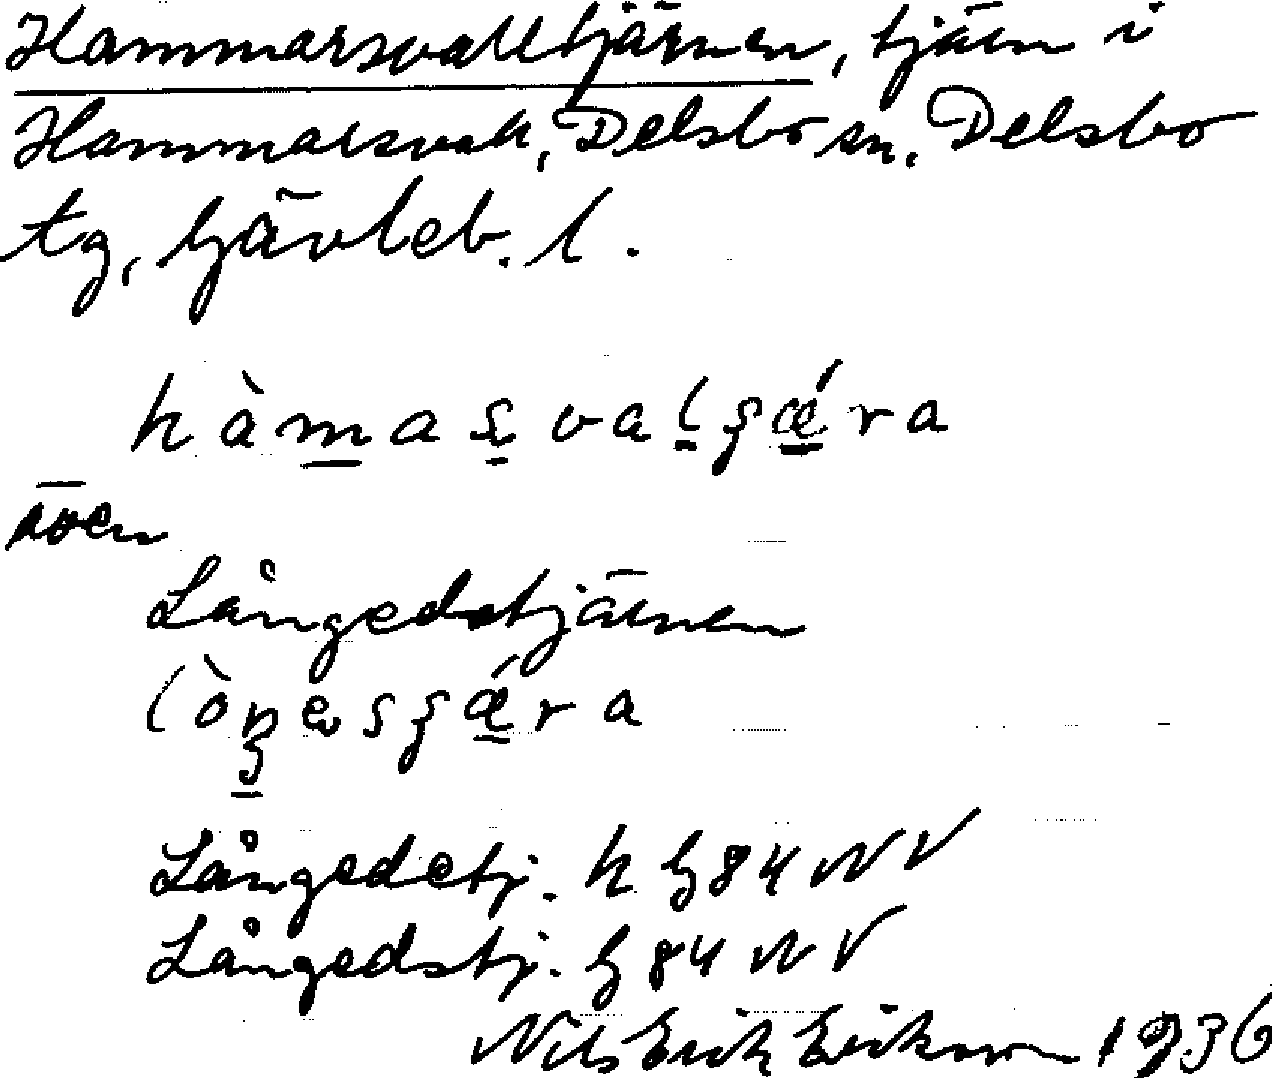 Hammarsvalltjärnen, tjärn i
Hammarsvall, Delsbo sn, Delsbo
tg, Gävleb. l.
även
Långedstjärnen
Långedetj. h G 84 NV
Långedstj. G 84 NV
Nils Erik Erikson 1936